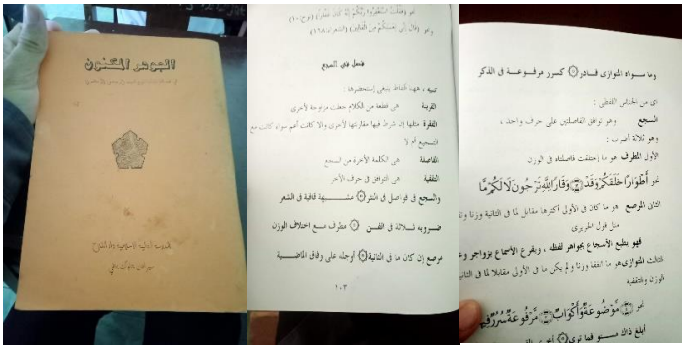 الجوهر المكنون
نحو (فقلت استغفروا ربكم إنه كان غفارا) (نوح ١٠)
ونحو (قال إني لعملكم من القالين) (الشعراء ١٦٨)
فصل في السجع
تنبيه ، ههنا ألفاظ ينبغي إستحضارها
القرينة هي قطعة من الكلام جعلت مزدوجة لأخرى
الفقرة مثلها إن شرط فيها مقارنتها لأخرى والا كانت أعم سواء كانت مع
تسجيع أم لا
الفاصلة هي الكلمة الأخيرة من السجع
التقفية هي التوافق في حرف الآخر
والسجع في فواصل في النثر مشبهة قافية في الشعر
ضروبه ثلاثة في الفن مطرف مع اختلاف الوزن
مرصع إن كان ما في الثانية أوجله على وفاق الماضية
١٠٣
وما سواه المتوازى فادر كسرر مرفوعة في الذكر
اى من الجناس اللفظى :
السجع وهو توافق الفاصلتين على حرف واحد ،
وهو ثلاثة أضرب :
الأول المطرف هو ما إختلفت فاصلتاه في الوزن
نحو أطوارا خلقكم وقد وقارا لله ترجون لا لكم ما
الثانى المرصع هو ما كان في الأولى أكثرها مقابل لما في الثانية وزنا
مثل قول الحريرى
فهو يطبع الأسجاع بجواهر لفظه ، ويقرع الأسماع بزواجر
الثالث المتوازى هو ما اتفقا وزنا ولم يكن ما في الأولى مقابلا لما في
الوزن والتقفية
نحو موضوعة وأكواب مرفوعة سرر فيها
أبلغ ذاك مستو فما ترى